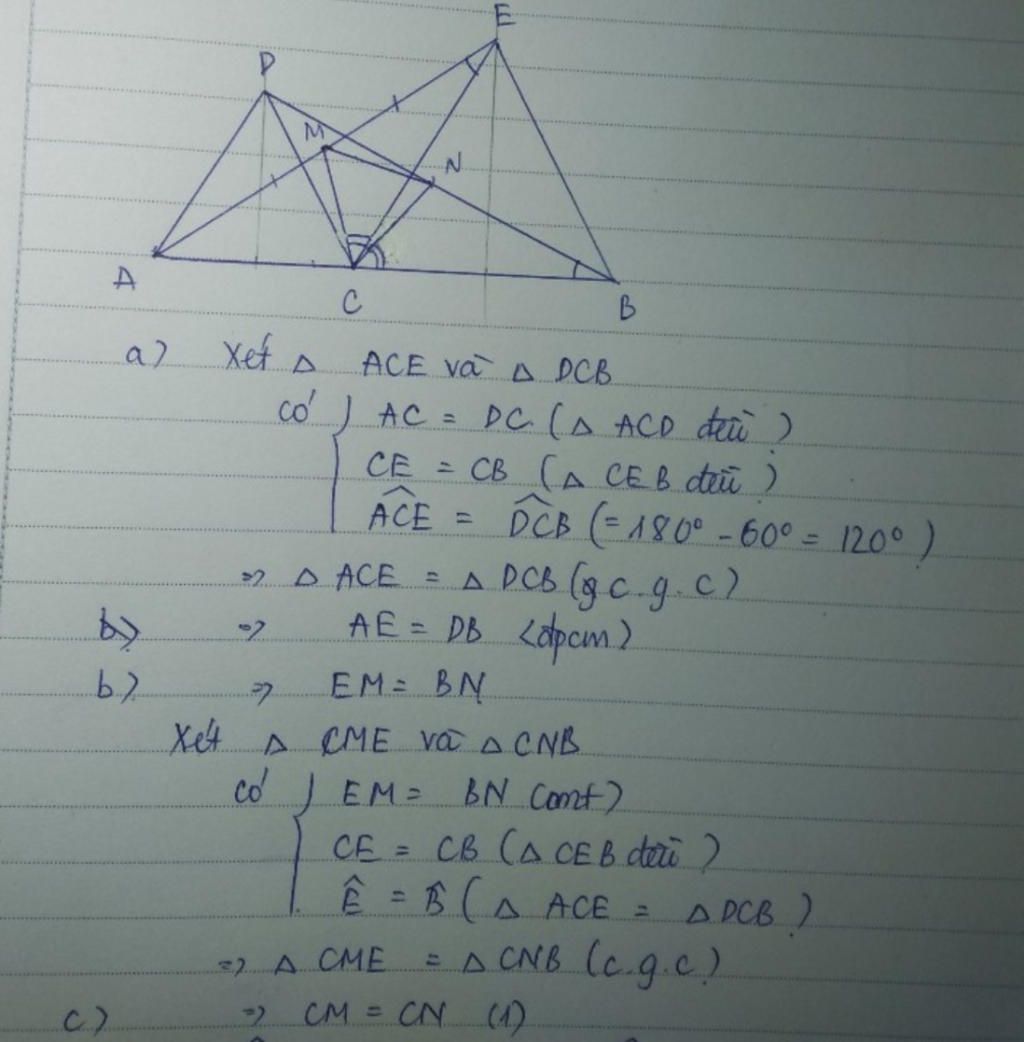 E
D
M
N
A
C
B
a) Xét △ ACE và △ DCB
có { AC = DC (△ ACD đều)
CE = CB (△ CEB đều)
\widehat{ACE} = \widehat{DCB} (= 180° - 60° = 120°)
=> △ ACE = △ DCB (c.g.c)
=> AE = DB (đpcm)
b) => EM = BN
Xét △ CME và △ CNB
có { EM = BN (cmt)
CE = CB (△ CEB đều)
Ê = B̂ (△ ACE = △ DCB)
=> △ CME = △ CNB (c.g.c)
c) => CM = CN (1)